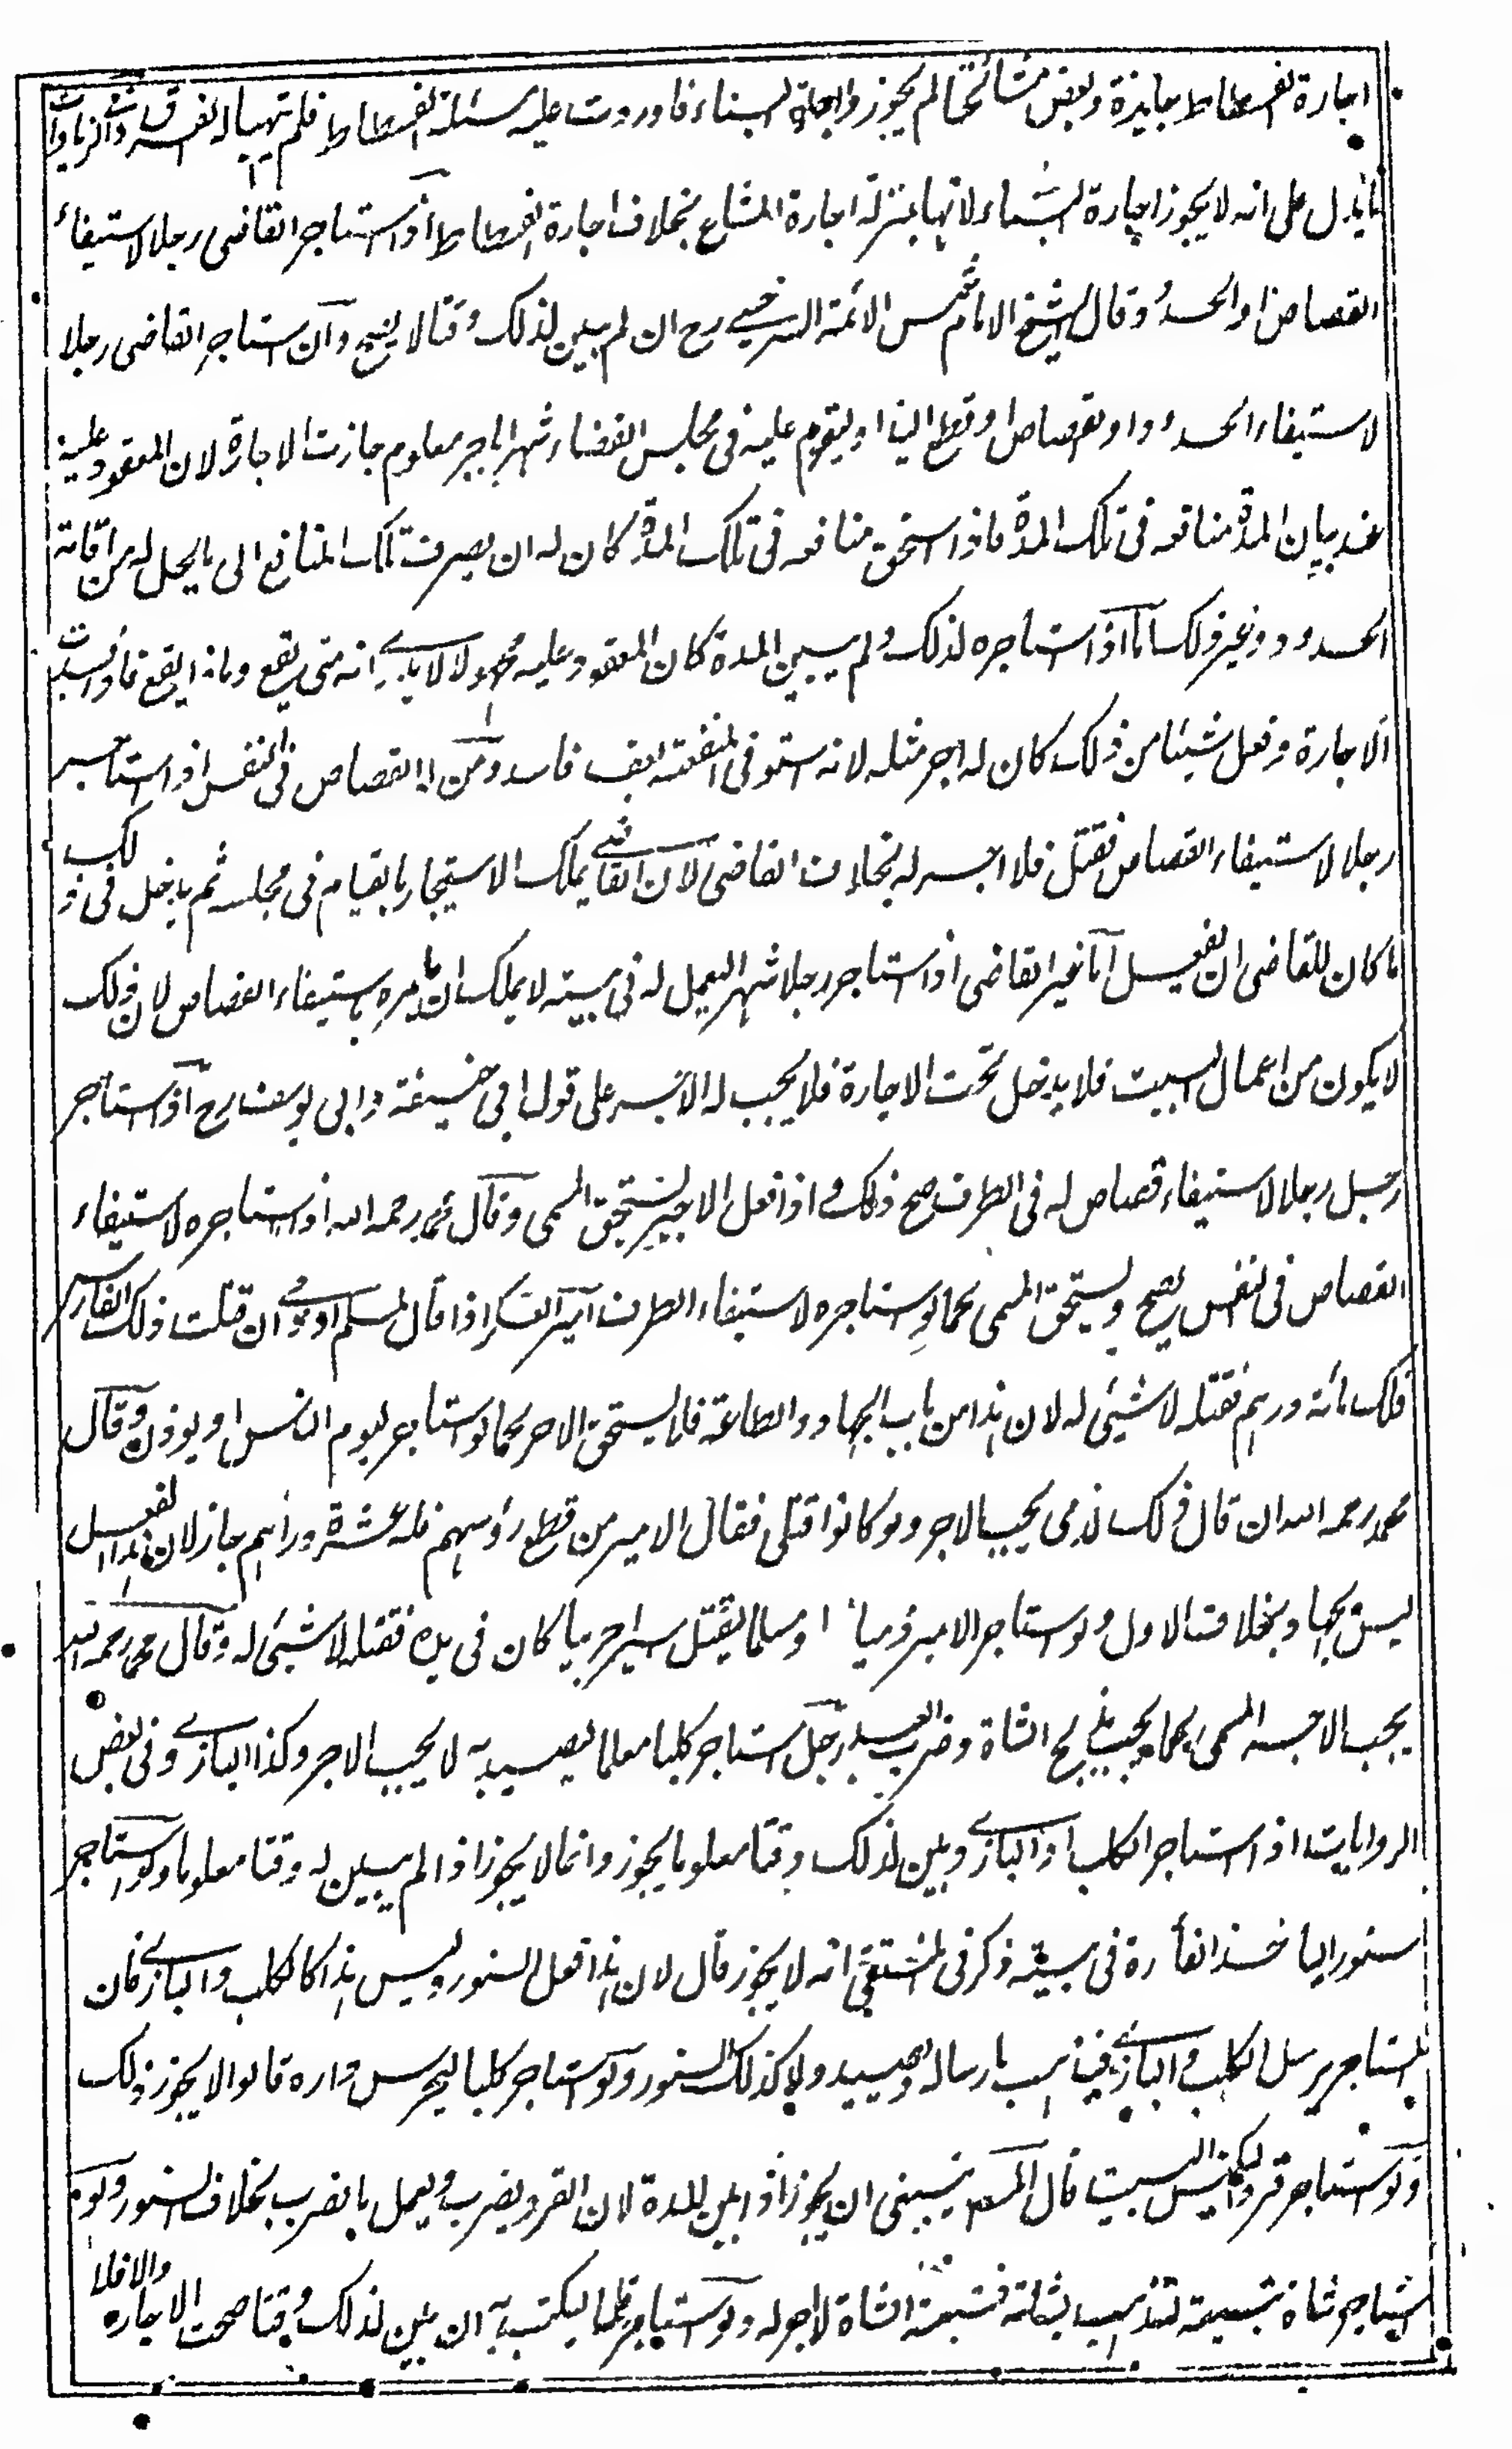 اجارة الفسطاط جايزة وبعض مشائخنا لم يجوزوا اجارة البناء فاوردت عليه مسئلة الفسطاط فلم يتهيا له الفرق وفي الزيادات
ما يدل على انه لا يجوز اجارة البناء لانها بمنزلة اجارة المشاع بخلاف اجارة الفسطاط اذا استاجر القاضى رجلا لاستيفاء
القصاص او الحدود قال الشيخ الامام شمس الائمة السرخسي رح ان لم يبين لذلك وقتا لا يصح وان استاجر القاضى رجلا
لاستيفاء الحدود او القصاص او قطع اليد او ليقوم عليه فى مجلس القضاء شهرا باجر معلوم جازت الاجارة لان المعقود عليه
عند بيان المدة منافعه فى تلك المدة فاذا استحق منافعه فى تلك المدة كان له ان يصرف تلك المنافع الى ما يحل له من اقامة
الحدود وغير ذلك اما اذا استاجره لذلك ولم يبين المدة كان المعقود عليه مجهولا لا يدرى انه متى يقع وماذا يقع فاذا فسدت
الاجارة وفعل شيئا من ذلك كان له اجر مثله لانه استوفى المنفعة بعقد فاسد ومن له القصاص فى النفس اذا استاجر
رجلا لاستيفاء القصاص فقتل فلا اجر له بخلاف القاضى لان القاضي يملك الاستيجار بالقيام فى مجلسه ثم يدخل فى ذلك
ما كان للقاضى ان يفعل اما غير القاضى اذا استاجر رجلا شهرا ليعمل له فى بيته لا يملك ان يامره باستيفاء القصاص لان ذلك
لا يكون من اعمال البيت فلا يدخل تحت الاجارة فلا يجب له الاجر على قول ابى حنيفة وابى يوسف رح اذا استاجر
رجل رجلا لاستيفاء قصاص له فى الطرف صح ذلك واذا فعل الاجير يستحق المسمى وقال محمد رحمه الله اذا استاجره لاستيفاء
القصاص فى نفس يصح ويستحق المسمى كما لو استاجره لاستيفاء الطرف امير العسكر اذا قال لمسلم او ذمي ان قتلت ذلك الفارس
فلك مائة درهم فقتله لا شيئ له لان هذا من باب الجهاد والطاعة فلا يستحق الاجر كما لو استاجر ليوم الناس او يوذن وقال
محمد رحمه الله ان قال ذلك لذمى يجب الاجر ولو كانوا قتلى فقال الامير من قطع رؤسهم فله عشرة دراهم جاز لان هذا الفعل
ليس بجهاد بخلاف الاول ولو استاجر الامير ذميا او مسلما ليقتل اسيرا حربيا كان فى يده فقتله لا شيئ له وقال محمد رحمه الله
يجب الاجر المسمى كما يجب بذبح الشاة وضرب العبد رجل استاجر كلبا معلما ليصيد به لا يجب الاجر وكذا البازى وفى بعض
الروايات اذا استاجر الكلب او البازى وبين لذلك وقتا معلوما يجوز وانما لا يجوز اذا لم يبين له وقتا معلوما ولو استاجر
سنورا لياخذ الفأرة فى بيته ذكر فى المنتقى انه لا يجوز قال لان هذا فعل السنور وليس هذا كالكلب والبازى فان
المستاجر يرسل الكلب والبازى فيذهب بارساله ويصيد ولا كذلك السنور ولو استاجر كلبا ليحرس داره قالوا لا يجوز ذلك
ولو استاجر قردا ليكنس البيت قال المصنف ينبغى ان يجوز اذا بين المدة لان القرد يضرب ويعمل بالضرب بخلاف السنور ولو
استاجر شاة تبيعة لتذهب بشاته فتبعته الشاة لا اجر له ولو استاجر قلما ليكتب به ان بين لذلك وقتا صحت الاجارة
والا فلا